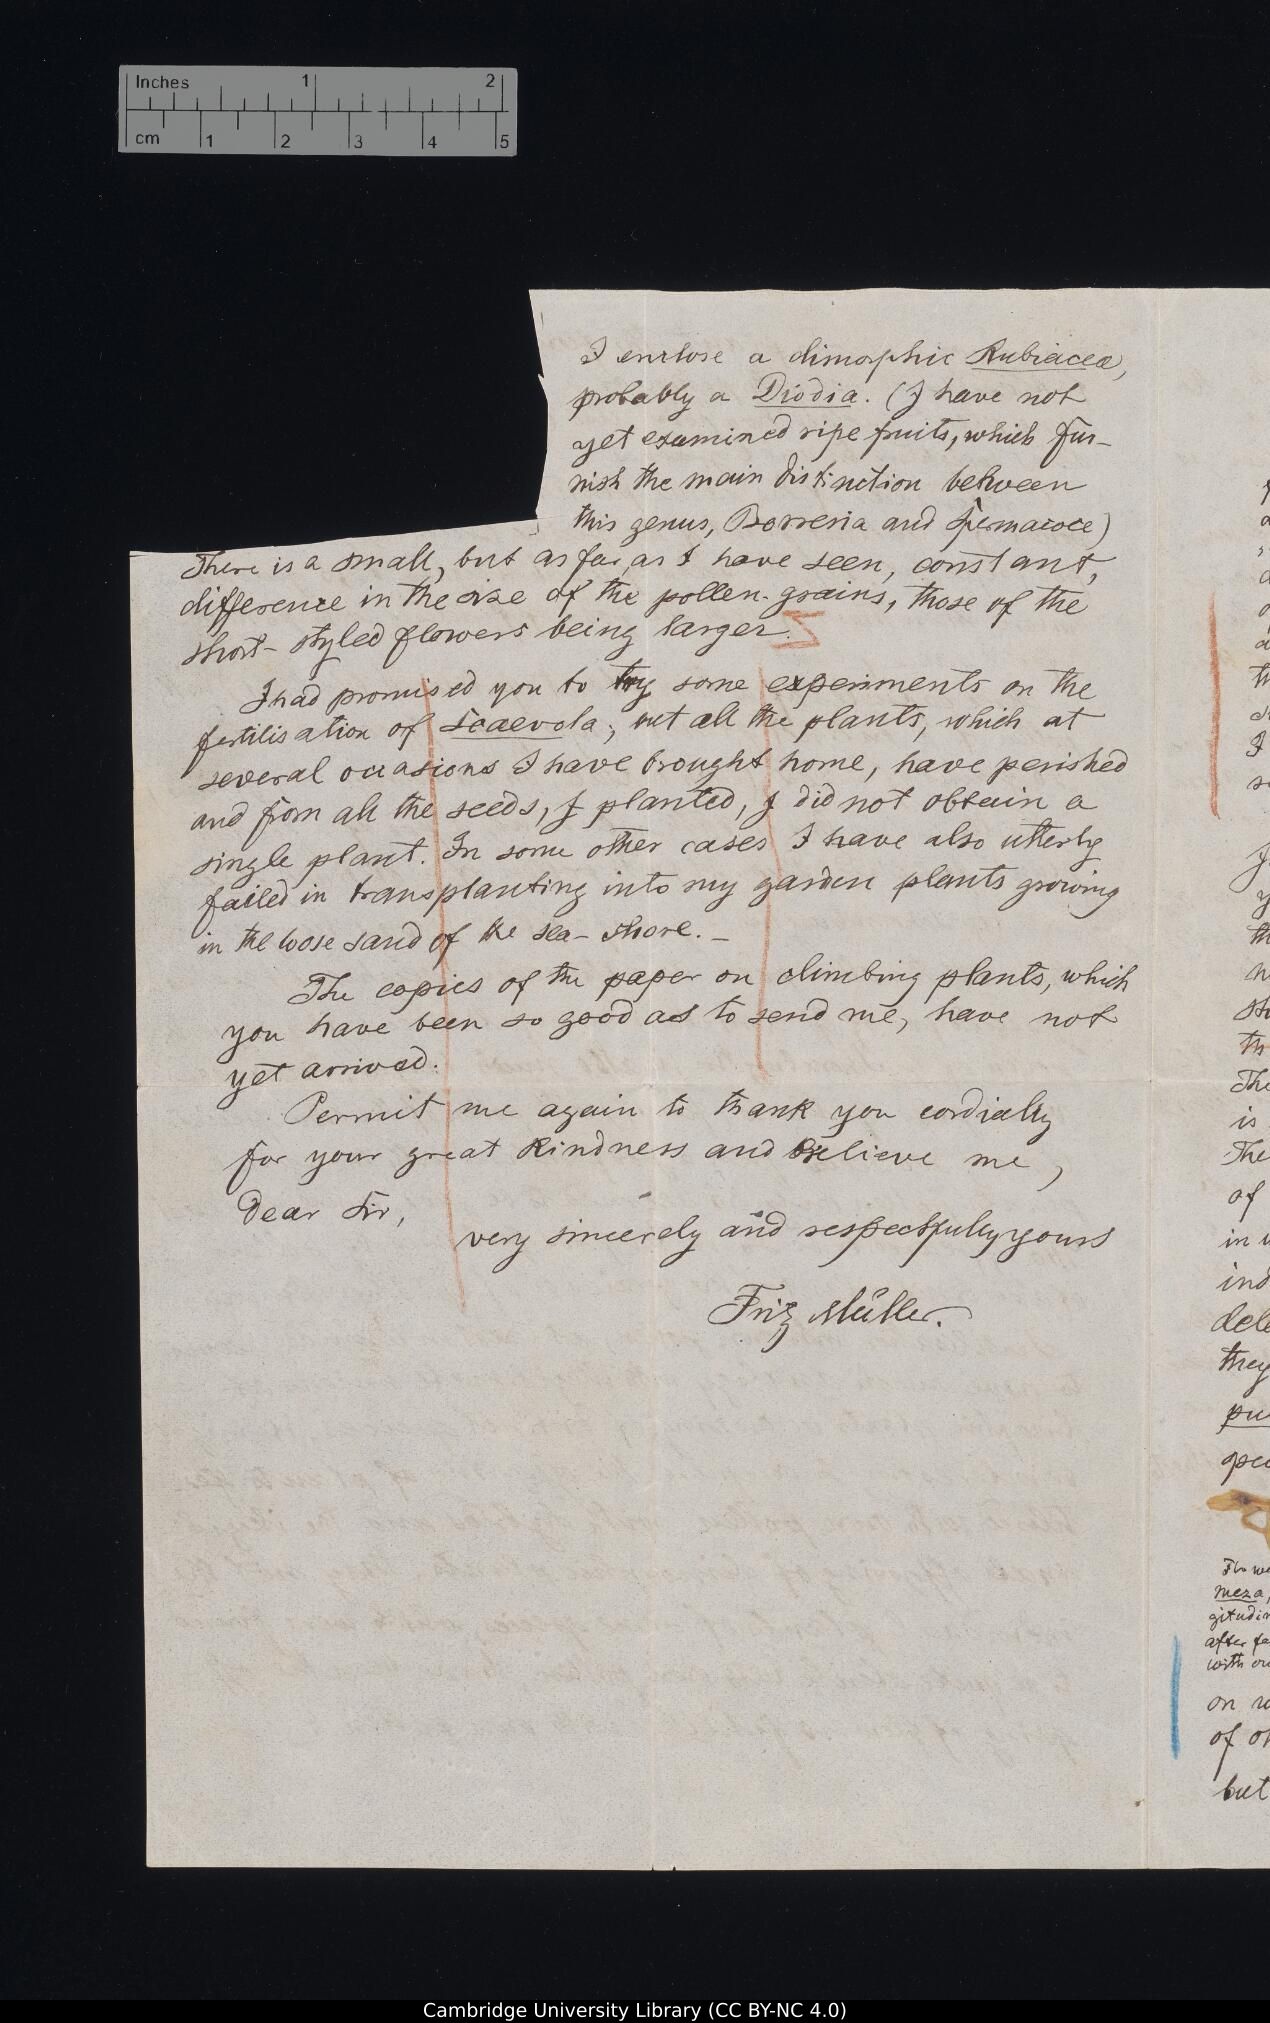 Inches 1 2
cm 1 2 3 4 5
I enclose a dimorphic Rubiacea,
probably a Diodia. (I have not
yet examined ripe fruits, which fur-
nish the main distinction between
this genus, Borreria and Spermacoce)
There is a small, but as far as I have seen, constant,
difference in the size of the pollen-grains, those of the
short-styled flowers being larger.
I had promised you to try some experiments on the
fertilisation of Scaevola; but all the plants, which at
several occasions I have brought home, have perished
and from all the seeds, I planted, I did not obtain a
single plant. In some other cases I have also utterly
failed in transplanting into my garden plants growing
in the loose sand of the sea-shore. –
The copies of the paper on climbing plants, which
you have been so good as to send me, have not
yet arrived.
Permit me again to thank you cordially
for your great kindness and believe me,
Dear Sir,
very sincerely and respectfully yours
Fritz Müller.
I
The
is
The
of
in
they
meza,
after
with
on
of
but
Cambridge University Library (CC BY-NC 4.0)